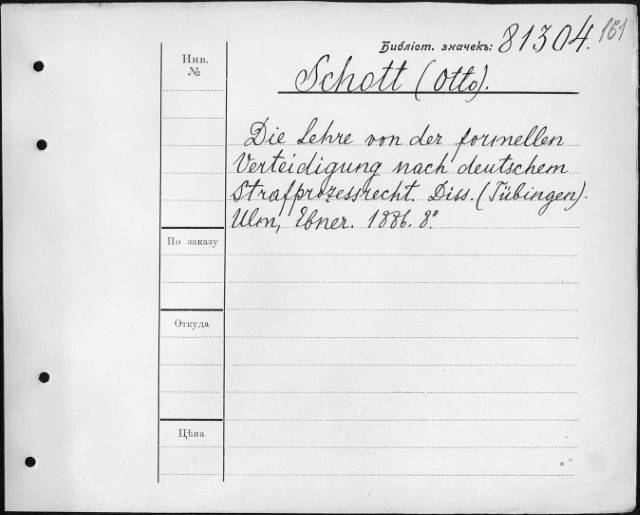 Библіот. значекъ: 81304. 161
Инв.
№
Schott (Otto).
Die Lehre von der formellen
Verteidigung nach deutschem
Strafprozessrecht. Diss. (Tübingen).
Ulm, Ebner. 1886. 8°.
По заказу
Откуда
Цѣна